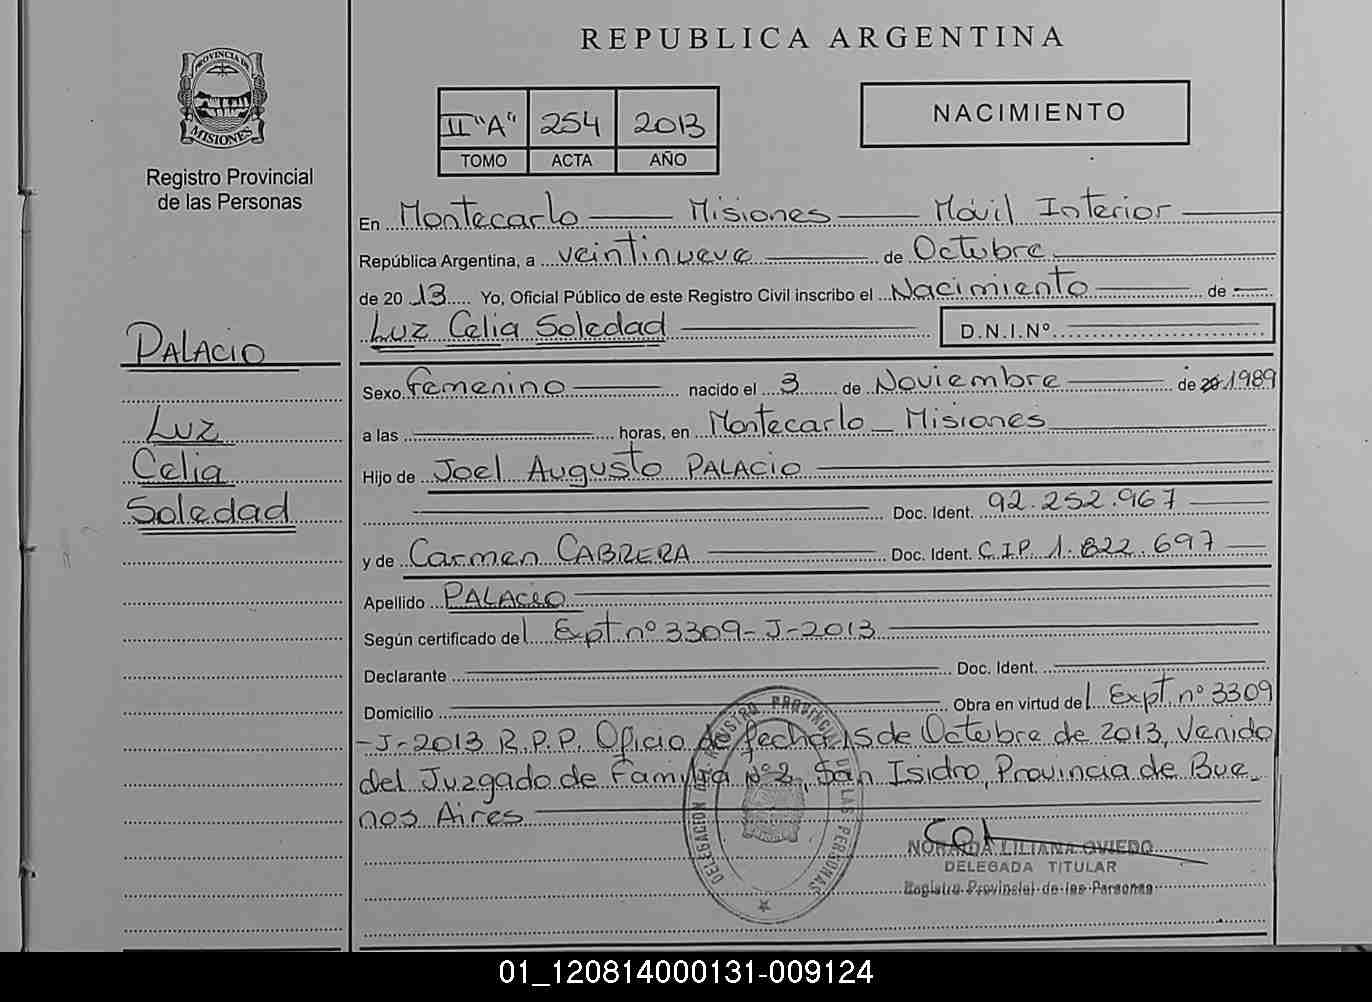 REPUBLICA ARGENTINA
PROVINCIA DE
MISIONES
Registro Provincial
de las Personas
II "A" 254 2013
TOMO ACTA AÑO
NACIMIENTO
En Montecarlo Misiones Móvil Interior
República Argentina, a veintinueve de Octubre
de 20 13 Yo, Oficial Público de este Registro Civil inscribo el Nacimiento de
Luz Celia Soledad D.N.I.Nº
PALACIO
Luz
Celia
Soledad
Sexo Femenino nacido el 3 de Noviembre de 20 1989
a las horas, en Montecarlo _ Misiones
Hijo de Joel Augusto PALACIO
Doc. Ident. 92.252.967
y de Carmen CABRERA Doc. Ident. C.I.P. 1.822.697
Apellido PALACIO
Según certificado del Expt. nº 3309-J-2013
Declarante Doc. Ident.
Domicilio Obra en virtud del Expt. nº 3309
-J-2013 R.P.P. Oficio de fecha 15 de Octubre de 2013, Venido
del Juzgado de Familia Nº 2, San Isidro, Provincia de Bue_
nos Aires
DELEGACION DEL REGISTRO PROVINCIAL DE LAS PERSONAS
LILIANA OVIEDO
DELEGADA TITULAR
Registro Provincial de las Personas
01_120814000131-009124